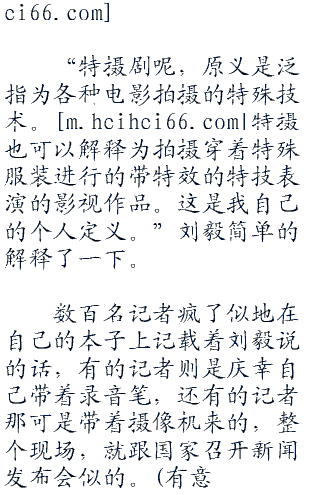 ci66.com]
“特摄剧呢，原义是泛
指为各种电影拍摄的特殊技
术。[m.hcihci66.com|特摄
也可以解释为拍摄穿着特殊
服装进行的带特效的特技表
演的影视作品。这是我自己
的个人定义。”刘毅简单的
解释了一下。
数百名记者疯了似地在
自己的本子上记载着刘毅说
的话，有的记者则是庆幸自
己带着录音笔，还有的记者
那可是带着摄像机来的，整
个现场，就跟国家召开新闻
发布会似的。(有意